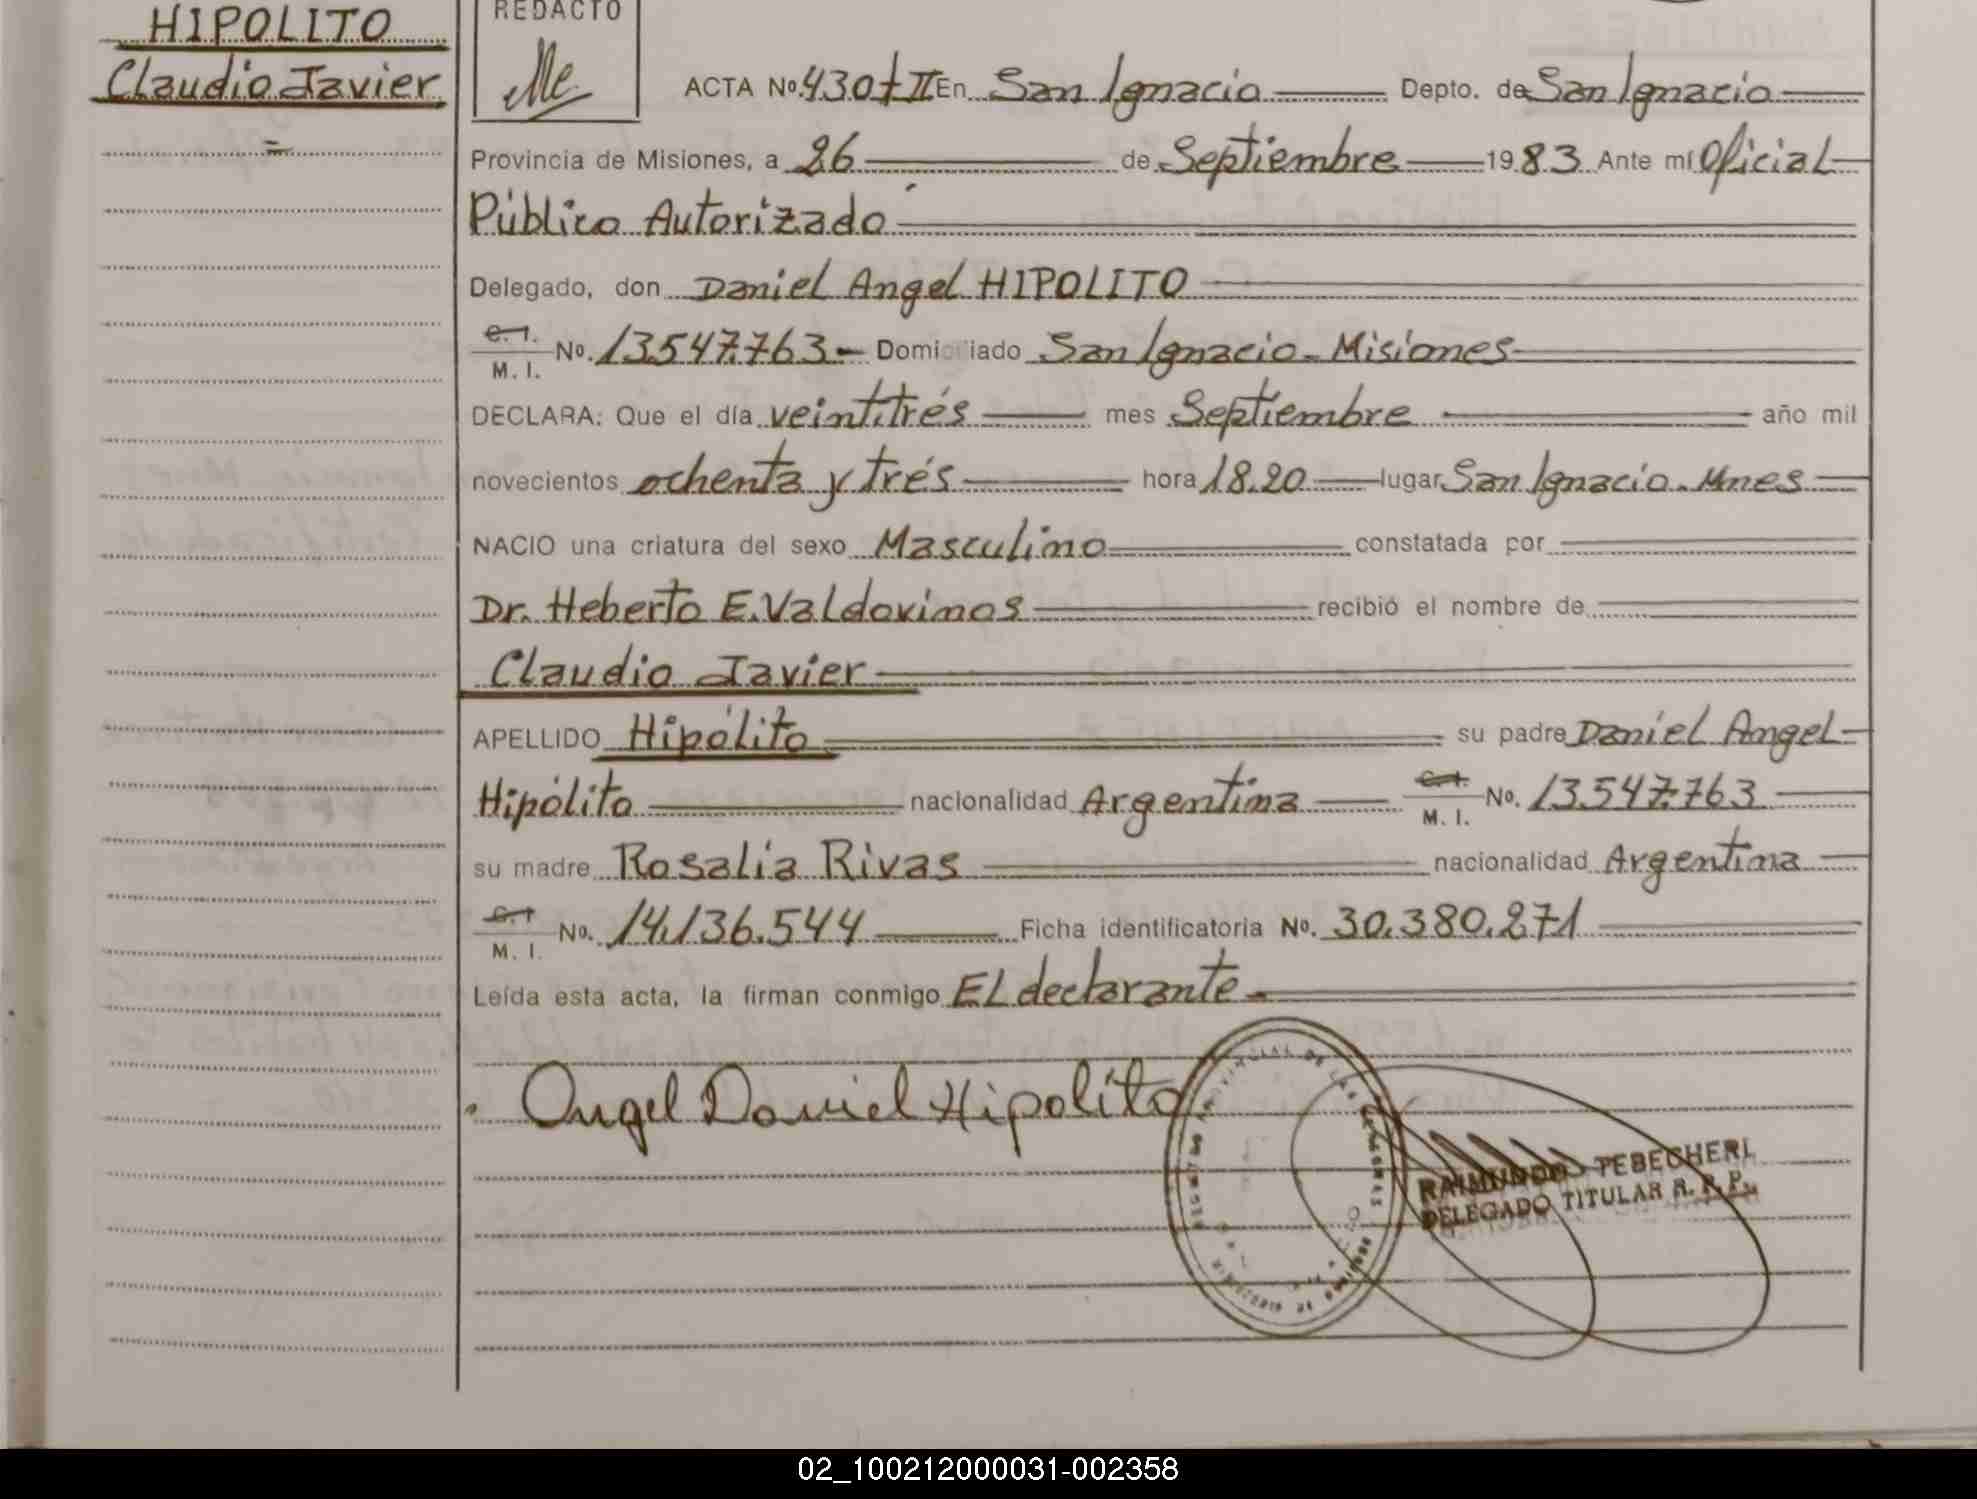 HIPOLITO
Claudio Javier
=
REDACTO
ACTA Nº 430 t II En San Ignacio Depto. de San Ignacio
Provincia de Misiones, a 26 de Septiembre 1983 Ante mí Oficial
Público Autorizado
Delegado, don Daniel Angel HIPOLITO
C. I.
M. I. No. 13.547.763 - Domiciliado San Ignacio - Misiones
DECLARA: Que el día veintitrés mes Septiembre año mil
novecientos ochenta y trés hora 18.20 lugar San Ignacio. Mnes
NACIO una criatura del sexo Masculino constatada por
Dr. Heberto E. Valdovinos recibió el nombre de
Claudio Javier
APELLIDO Hipólito su padre Daniel Angel
Hipólito nacionalidad Argentina C. I. M. I. No. 13.547.763
su madre Rosalia Rivas nacionalidad Argentina
C. I.
M. I. No. 14.136.544 Ficha identificatoria Nº. 30.380.271
Leída esta acta, la firman conmigo El declarante -
Angel Daniel Hipolito
RAIMUNDO TEBECHERI
DELEGADO TITULAR R. P. P.
02_100212000031-002358